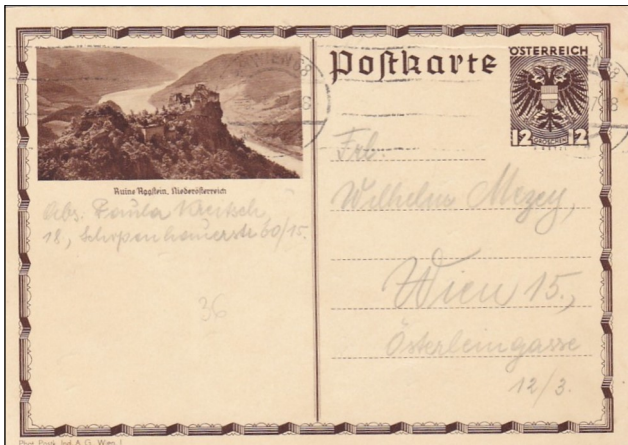 Postkarte
ÖSTERREICH
12 GROSCHEN 12
Ruine Aggstein, Niederösterreich
Abs. Paula
18, Schopenhauerstr 60/15.
36
Frl.
Wilhelm Mezey,
Wien 15.,
Österleingasse
12/3.
Phot. Postk. Ind. A. G., Wien I